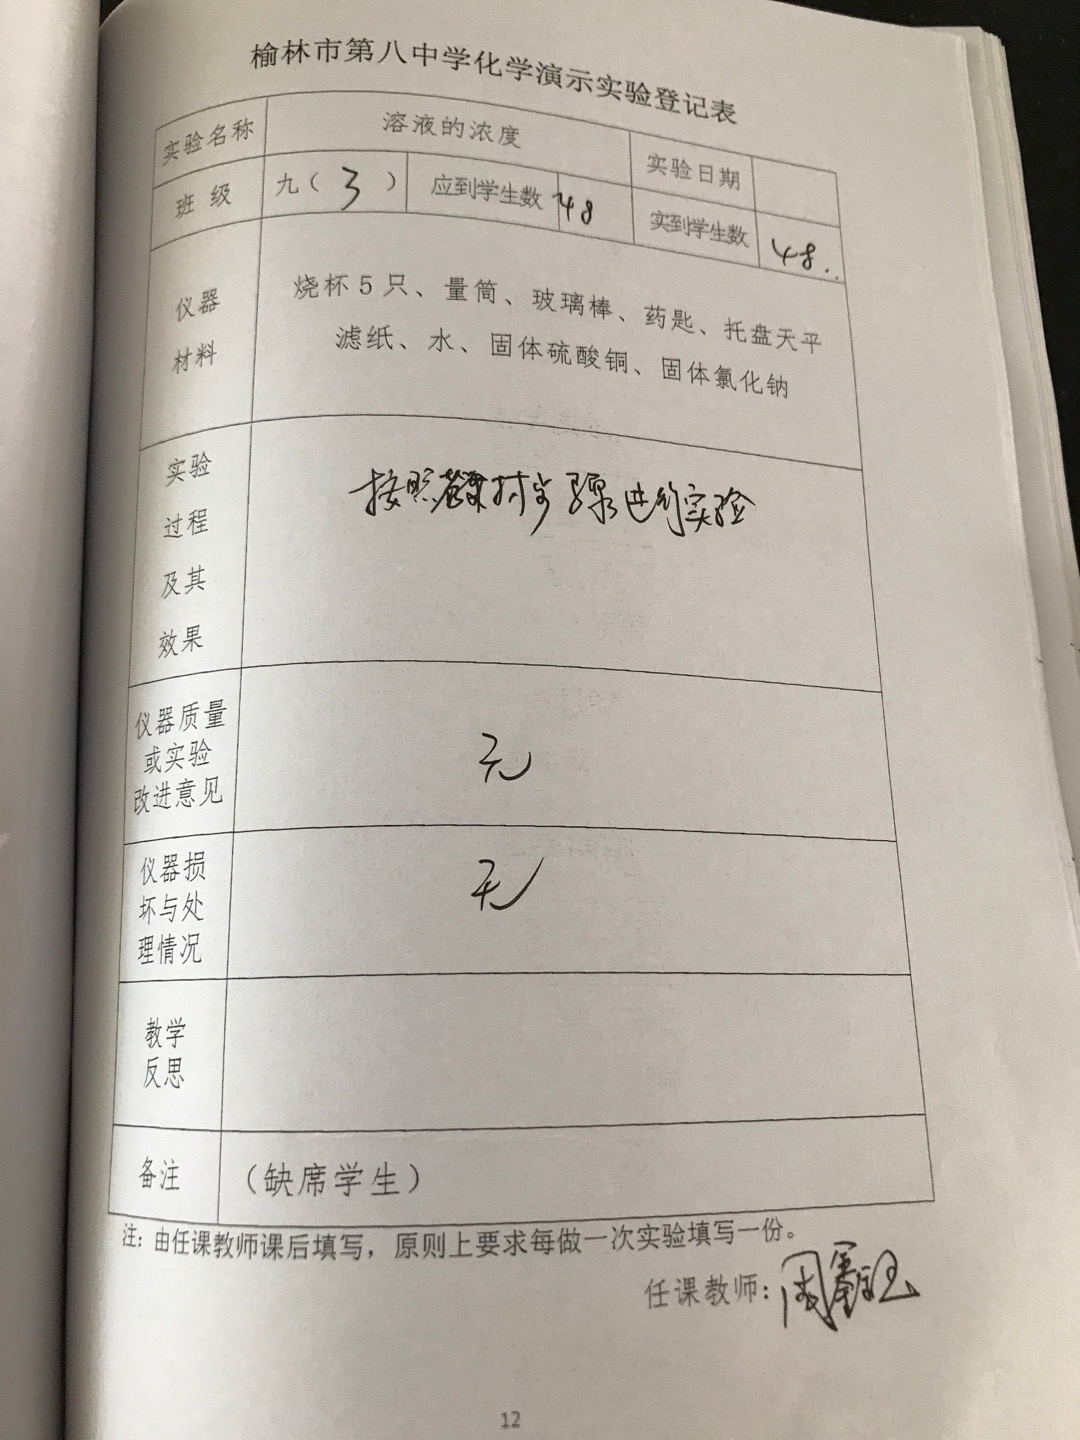 榆林市第八中学化学演示实验登记表
实验名称 溶液的浓度 实验日期
班 级 九（ 3 ） 应到学生数 48 实到学生数 48
仪器
材料
烧杯5只、量筒、玻璃棒、药匙、托盘天平
滤纸、水、固体硫酸铜、固体氯化钠
实验
过程
及其
效果
按照课本步骤进行实验
仪器质量
或实验
改进意见
无
仪器损
坏与处
理情况
无
教学
反思
备注 （缺席学生）
注：由任课教师课后填写，原则上要求每做一次实验填写一份。
任课教师：周
12